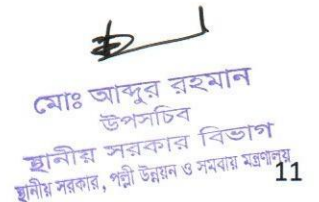 মোঃ আব্দুর রহমান
উপসচিব
স্থানীয় সরকার বিভাগ
স্থানীয় সরকার, পল্লী উন্নয়ন ও সমবায় মন্ত্রণালয়
11